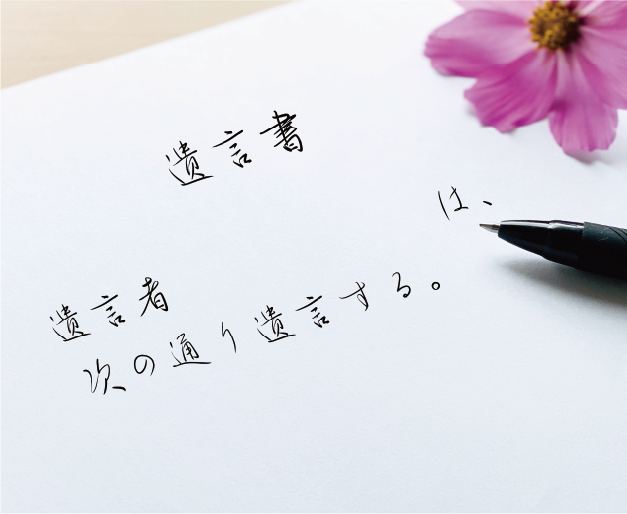 遺言書
遺言者　　　　　　　　は、
次の通り遺言する。